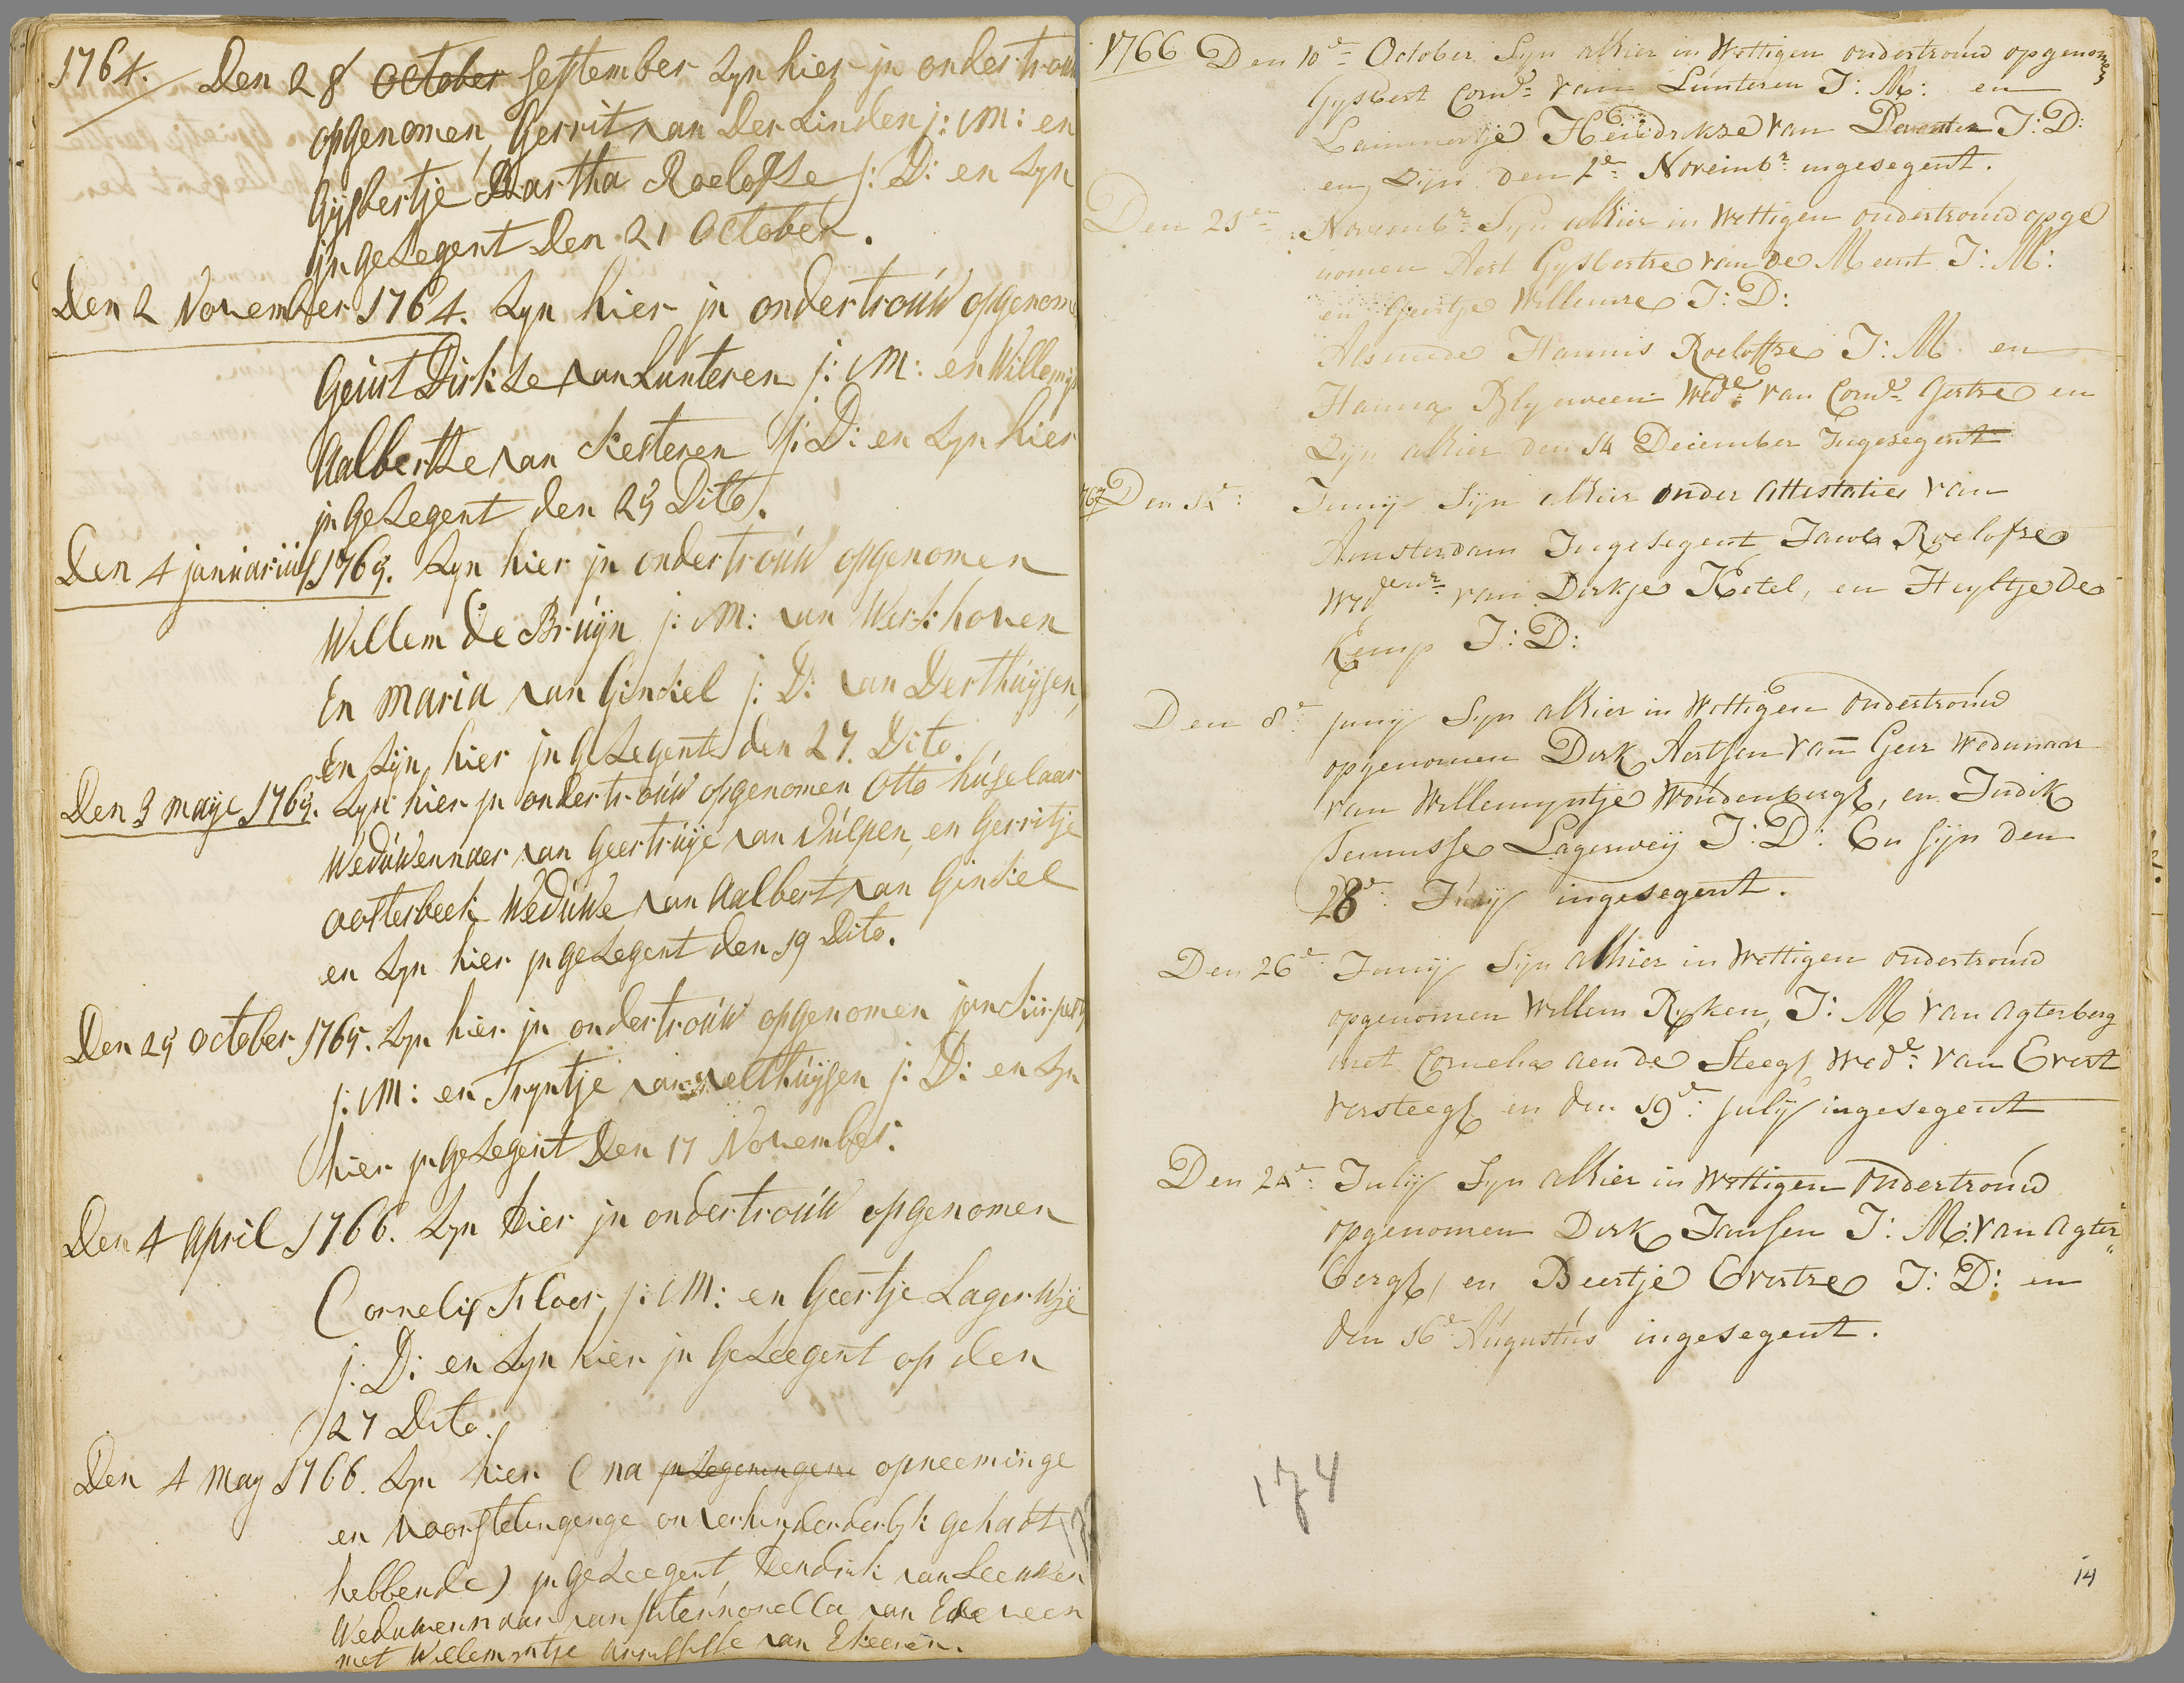 1764. Den 28 october September Zyn hier jn ondertrouw
opgenomen, Gerrit van Der Linden j: M: en
Gijsbertje Bartha Roelofse j: D: en Zyn
jngezegent Den 21 October.
Den 2 November 1764. Zyn hier jn ondertrouw opgenome
Geurt Dirkse van Lunteren j: M: en Willemijn
Aalbertse van Kesteren j: D: en Zyn hier
jngezegent den 25 Dito.
Den 4 januarius 1765. Zyn hier jn ondertrouw opgenomen
Willem de Bruyn j: M: van Werkhoven
En Maria van Ginkel j: D: van Derthuysen,
En Zijn hier jngezegent den 27. Dito.
Den 3 maye 1765. Zyn hier jn ondertrouw opgenomen Otto hugelaar
Weduwennaer van Geertruye van Vulpen, en Gerritje
oosterbeek Weduwe van Aalbert van Ginkel
en Zyn hier jngezegent den 19 Dito.
Den 25 October 1765. Zyn hier jn ondertrouw opgenomen jan
j: M: en Tryntje van velthuysen j: D: en Zyn
hier jngezegent Den 17 November.
Den 4 April 1766. Zyn hier jn ondertrouw opgenomen
Cornelis Floor, j: M: en Geertje Lagerwye
j: D: en Zyn hier jn Gezeegent op den
27 Dito.
Den 4 May 1766. Zyn hier (na opneeminge
en voorstelingenge onverhinderderlyk gehadt
hebbende) jngezeegent, Hendrik van Leeuwen
Weduwennaar van van
met Willemyntje van Ekeeren.
1766 Den 10de October Syn alhier in Wettigen ondertrouw opgenomen
Gysbert Cornds van Lunteren J: M: en
Lammertje Hendrikse van Deventer J: D:
en Zijn den 2de Novembr ingesegent.
Den 21en Novembr Syn alhier in Wettigen ondertrouw opge
nomen Aert Gysbertse van de Meent J: M:
en Geertje Willemse J: D:
Alsmede Hannis Roeloffse J: M: en
Hanna Blyerveen Wede van Corns Gertse en
Zyn alhier den 14 December Ingezegent
1767 Den 14: Juny Syn alhier onder attestatie van
Amsterdam Ingesegent Jacob Roelofse
Wedenr van Dirkje Ketel, en Heyltje de
Kemp J: D:
Den 8e juny Syn alhier in Wettigen ondertrouw
opgenomen Dirk Aertsen van Geer weduwnaar
van Willemyntje Woudenbergh, en Judik
Teunisse Lagerwey J: D: En sijn den
28e: Juny ingesegent.
Den 26e: Juny Syn alhier in Wettigen ondertrouw
opgenomen Willem Ryken, J: M van Agterberg
met Cornelia aen de Steegh Wede: van Evert
Versteegh en den 19e: july ingesegent
Den 24e: July Syn alhier in Wettigen ondertrouw
opgenomen Dirk Jansen J: M: van Agter„
bergh, en Beertje Evertse J: D: en
den 16e Augustus ingesegent.
174
14